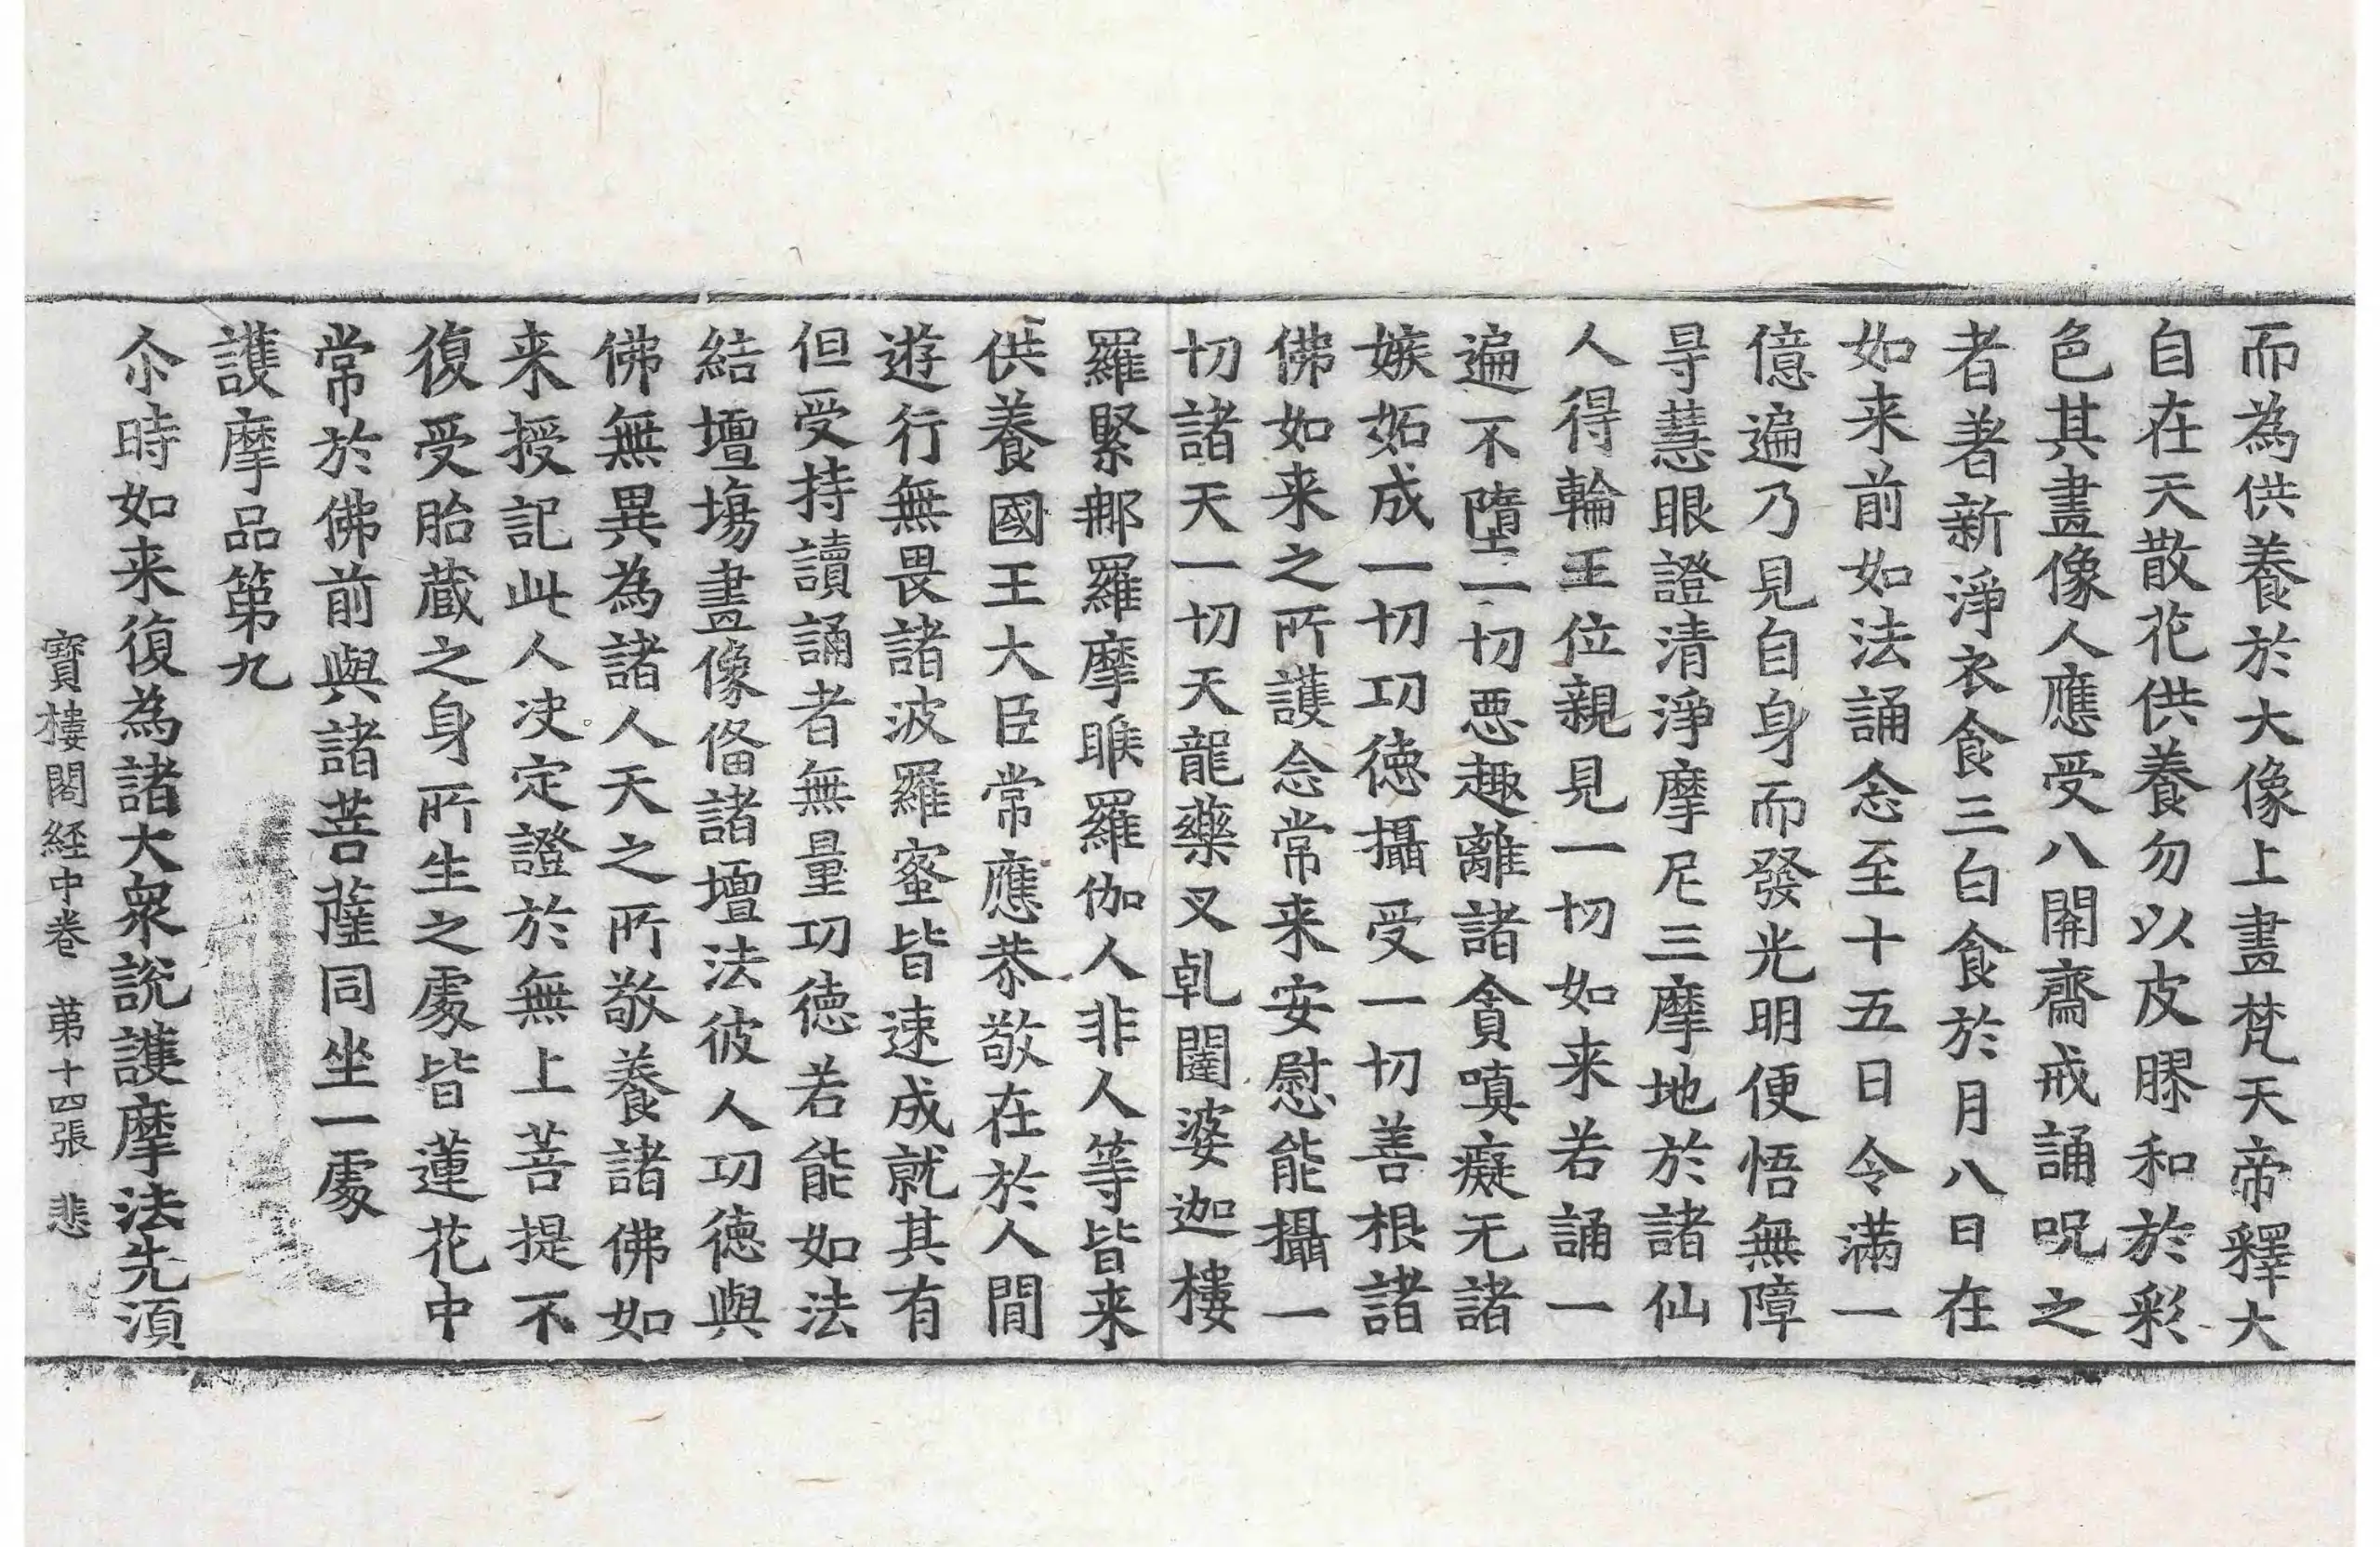 而為供養於大像上畫梵天帝釋大
自在天散花供養勿以皮膠和於彩
色其畫像人應受八關齋戒誦呪之
者著新淨衣食三白食於月八日在
如来前如法誦念至十五日令滿一
億遍乃見自身而發光明便悟無障
㝵慧眼證清淨摩尼三摩地於諸仙
人得輪王位親見一切如来若誦一
遍不墮一切惡趣離諸貪嗔癡无諸
嫉妬成一切功德攝受一切善根諸
佛如来之所護念常来安慰能攝一
切諸天一切天龍藥叉乹闥婆迦樓
羅緊那羅摩睺羅伽人非人等皆来
供養國王大臣常應恭敬在於人間
遊行無畏諸波羅蜜皆速成就其有
但受持讀誦者無量功德若能如法
結壇場畫像俻諸壇法彼人功德與
佛無異為諸人天之所敬養諸佛如
来授記此人决定證於無上菩提不
復受胎藏之身所生之處皆蓮花中
常於佛前與諸菩薩同坐一處
護摩品第九
尒時如来復為諸大衆說護摩法先須
寶樓閣経中卷 第十四張 悲